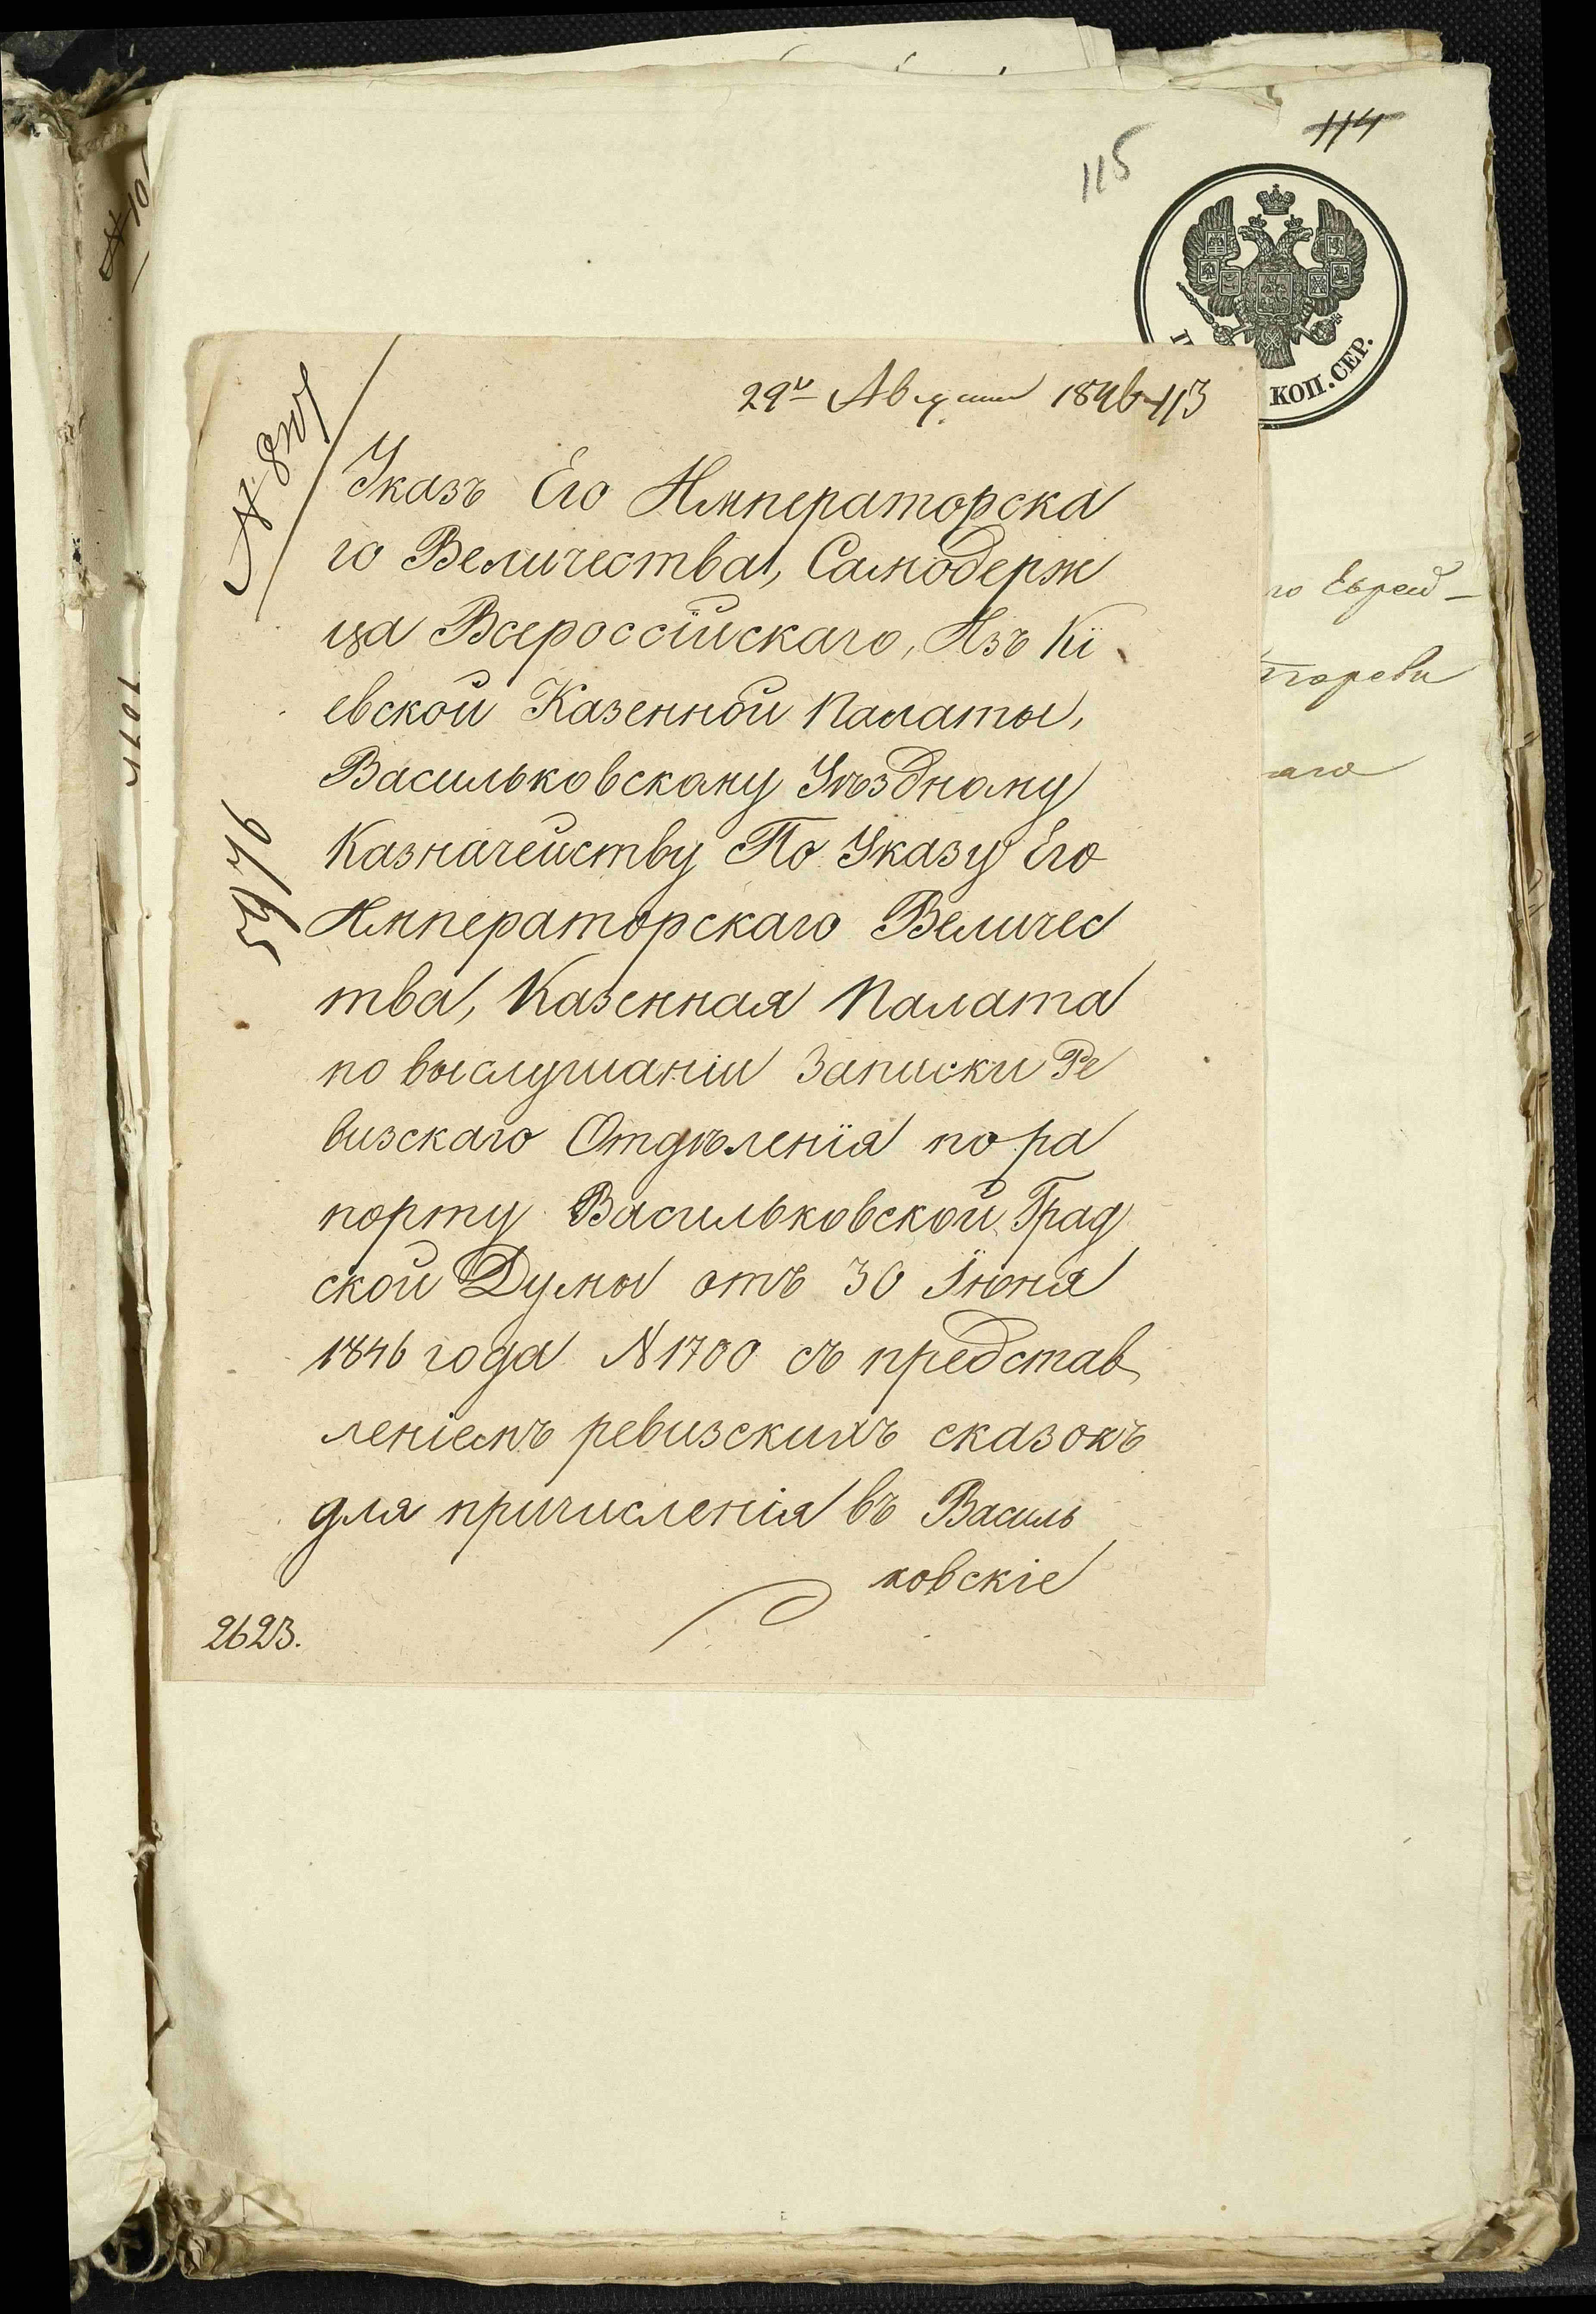 114
115
КОП. СЕР.
29 Августа 1846 113
Указъ Его Императорска
го Величества, Самодерж
ца Всероссійскаго, Изъ Кі
евской Казенной Палаты,
Васильковскому Уѣздному
Казначейству По Указу Его
Императорскаго Величес
тва, Казенная Палата
по выслушаніи Записки Ре
визскаго Отдѣленія по ра
порту Васильковской Град
ской Думы отъ 30 Іюня
1846 года N 1700 съ представ
леніемъ ревизскихъ сказокъ
для причисленія въ Василь
ковскіе
2623.
5976
го Еврей-
аго